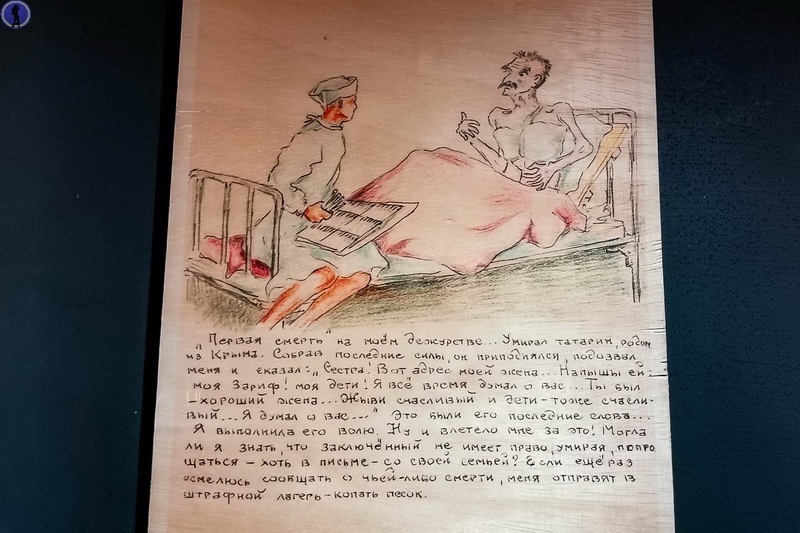 „Первая смерть" на моём дежурстве... Умирал татарин, родом
из Крыма. Собрав последние силы, он приподнялся, подозвал
меня и сказал: „Сестра! Вот адрес моей жена... Напышы ей:
моя Зариф! моя дети! Я всё время думал о вас... Ты был
-хороший жена... Жыви счасливый и дети-тоже счасли-
вый... Я думал о вас..." Это были его последние слова...
Я выполнила его волю. Ну и влетело мне за это! Могла
ли я знать, что заключённый не имеет право, умирая, попро
щаться - хоть в письме - со своей семьей? Если ещё раз
осмелюсь сообщать о чьей-либо смерти, меня отправят в
штрафной лагерь - копать песок.